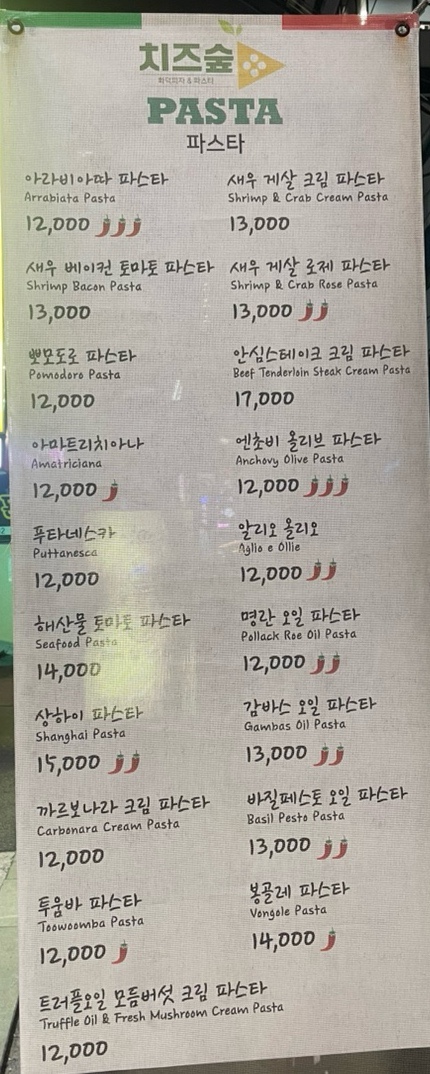 치즈숲
화덕피자 & 파스타
PASTA
파스타
아라비아따 파스타
Arrabiata Pasta
12,000
새우 베이컨 토마토 파스타
Shrimp Bacon Pasta
13,000
뽀모도로 파스타
Pomodoro Pasta
12,000
아마트리치아나
Amatriciana
12,000
푸타네스카
Puttanesca
12,000
해산물 토마토 파스타
Seafood Pasta
14,000
상하이 파스타
Shanghai Pasta
15,000
까르보나라 크림 파스타
Carbonara Cream Pasta
12,000
투움바 파스타
Toowoomba Pasta
12,000
트러플오일 모듬버섯 크림 파스타
Truffle Oil & Fresh Mushroom Cream Pasta
12,000
새우 게살 크림 파스타
Shrimp & Crab Cream Pasta
13,000
새우 게살 로제 파스타
Shrimp & Crab Rose Pasta
13,000
안심스테이크 크림 파스타
Beef Tenderloin Steak Cream Pasta
17,000
엔초비 올리브 파스타
Anchovy Olive Pasta
12,000
알리오 올리오
Aglio e Ollie
12,000
명란 오일 파스타
Pollack Roe Oil Pasta
12,000
감바스 오일 파스타
Gambas Oil Pasta
13,000
바질페스토 오일 파스타
Basil Pesto Pasta
13,000
봉골레 파스타
Vongole Pasta
14,000